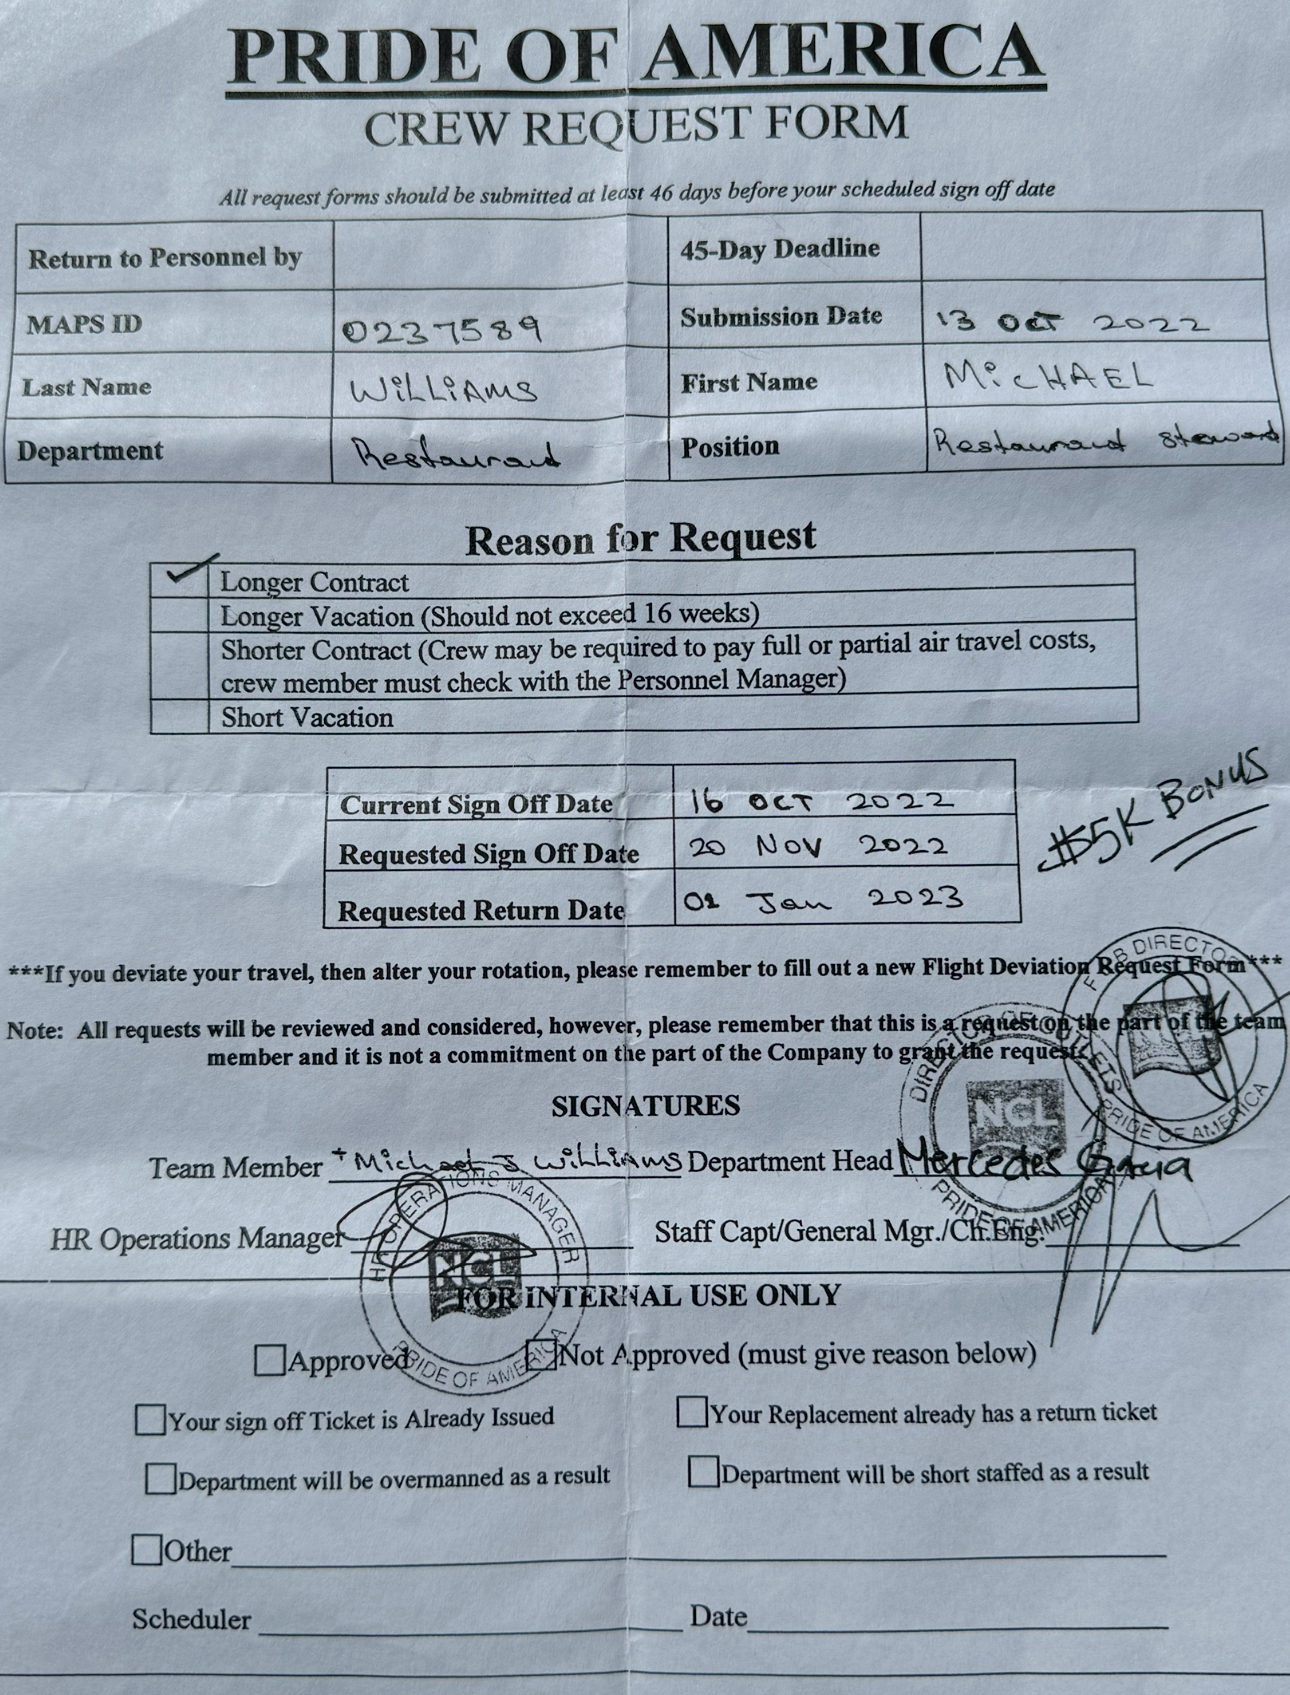 PRIDE OF AMERICA
CREW REQUEST FORM
All request forms should be submitted at least 46 days before your scheduled sign off date
Return to Personnel by 45-Day Deadline
MAPS ID 0237589 Submission Date 13 OCT 2022
Last Name WiLLiAMS First Name MiCHAEL
Department Restaurant Position Restaurant steward
Reason for Request
✓ Longer Contract
Longer Vacation (Should not exceed 16 weeks)
Shorter Contract (Crew may be required to pay full or partial air travel costs,
crew member must check with the Personnel Manager)
Short Vacation
Current Sign Off Date 16 OCT 2022
$5K BONUS
Requested Sign Off Date 20 NOV 2022
Requested Return Date 01 Jan 2023
***If you deviate your travel, then alter your rotation, please remember to fill out a new Flight Deviation Request Form***
Note: All requests will be reviewed and considered, however, please remember that this is a request on the part of the team
member and it is not a commitment on the part of the Company to grant the request.
F & B DIRECTOR
PRIDE OF AMERICA
DIRECTOR OF OUTLETS
NCL
PRIDE OF AMERICA
SIGNATURES
Team Member Michael J WiLLiAMS Department Head Mercedes
HR Operations Manager Staff Capt/General Mgr./Ch.Eng.
HR OPERATIONS MANAGER
NCL
PRIDE OF AMERICA
FOR INTERNAL USE ONLY
Approved Not Approved (must give reason below)
Your sign off Ticket is Already Issued Your Replacement already has a return ticket
Department will be overmanned as a result Department will be short staffed as a result
Other
Scheduler Date